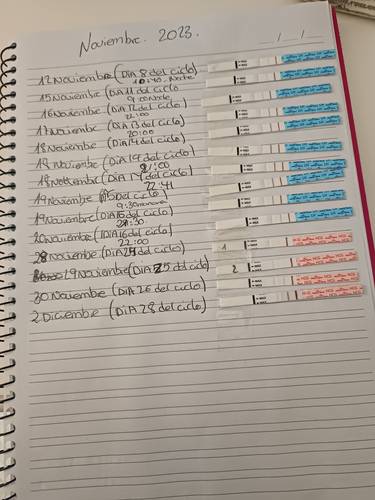 Noviembre. 2023.
12 Noviembre (DiA 8 del ciclo)
10:40. Noche
15 Noviembre (DiA 11 del ciclo
9:00 Noche
16 Noviembre (DiA 12 del ciclo)
22:00
17 Noviembre (DiA 13 del ciclo)
20:00
18 Noviembre (DiA 14 del ciclo)
18 Noviembre (DiA 14 del ciclo)
21:00
18 Noviembre (DiA 14 del ciclo)
22:41
19 Noviembre (15 del ciclo)
9:30 manana
19 Noviembre (DiA 15 del ciclo)
21:30
20 Noviembre (DiA 16 del ciclo)
22:00
28 Noviembre (DiA 24 del ciclo)
1
29 Noviembre (DiA 25 del ciclo)
2
30 Noviembre (DiA 26 del ciclo)
2 Diciembre (DiA 28 del ciclo)